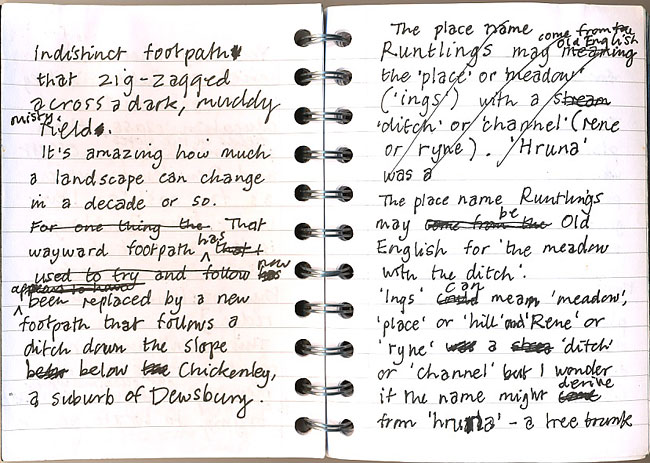 indistinct footpath
that zig-zagged
across a dark, muddy
misty field.
It's amazing how much
a landscape can change
in a decade or so.
For one thing the That
wayward footpath has that I
used to try and follow now
appears to have been replaced by a new
footpath that follows a
ditch down the slope
below Chickenley,
a suburb of Dewsbury.
The place name
Runtlings may come from the Old English meaning
the 'place' or 'meadow'
('ings') with a stream
'ditch' or 'channel' (rene
or ryne). 'Hruna'
was a
The place name Runtlings
may come from the be Old
English for 'the meadow
with the ditch'.
'Ings' could can mean 'meadow',
'place' or 'hill' and 'Rene' or
'ryne' was a 'ditch'
or 'channel' but I wonder
if the name might derive
from 'hruna' - a tree trunk